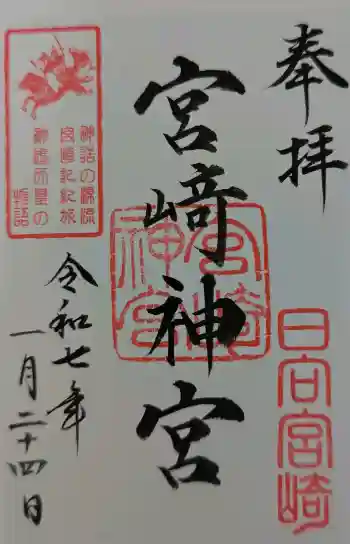 奉拝
日向宮崎
宮﨑神宮
宮崎神宮
令和七年
一月二十四日
神話の源流
宮崎記紀旅
神武天皇の
物語